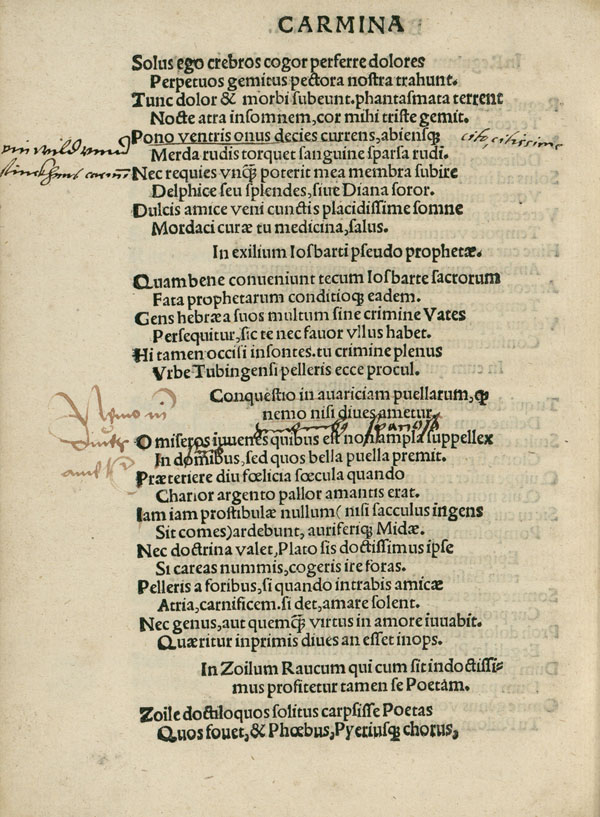 CARMINA
Solus ego crebros cogor perferre dolores
Perpetuos gemitus pectora nostra trahunt.
Tunc dolor & morbi subeunt. phantasmata terrent
Nocte atra insomnem, cor mihi triste gemit.
Pono ventris onus decies currens, abiensqꝫ
cito, citissime
Merda rudis torquet sanguine sparsa rudi.
Nec requies vnqȝ poterit mea membra subire
Delphice seu splendes, siue Diana soror.
Dulcis amice veni cunctis placidissime somne
Mordaci curæ tu medicina, salus.
In exilium Iosbarti pseudo prophetæ.
Quam bene conueniunt tecum Iosbarte sacrorum
Fata prophetarum conditioqꝫ eadem.
Gens hebræa suos multum sine crimine Vates
Persequitur, sic te nec fauor vllus habet.
Hi tamen occisi insontes. tu crimine plenus
Vrbe Tubingensi pelleris ecce procul.
Conquestio in auariciam puellarum, qꝫ
nemo nisi diues ametur.
Nemo ni
diues
O miseros iuuenes quibus est non ampla suppellex
In domibus, sed quos bella puella premit.
Præteriere diu fœlicia sœcula quando
Charior argento pallor amantis erat.
Iam iam prostibulæ nullum (nisi sacculus ingens
Sit comes) ardebunt, auriferiqꝫ Midæ.
Nec doctrina valet, Plato sis doctissimus ipse
Si careas nummis, cogeris ire foras.
Pelleris a foribus, si quando intrabis amicæ
Atria, carnificem. si det, amare solent.
Nec genus, aut quemqȝ virtus in amore iuuabit.
Quæritur inprimis diues an esset inops.
In Zoilum Raucum qui cum sit indoctissi-
mus profitetur tamen se Poetam.
Zoile doctiloquos solitus carpsisse Poetas
Quos fouet, & Phœbus, Pyeriusqꝫ chorus,